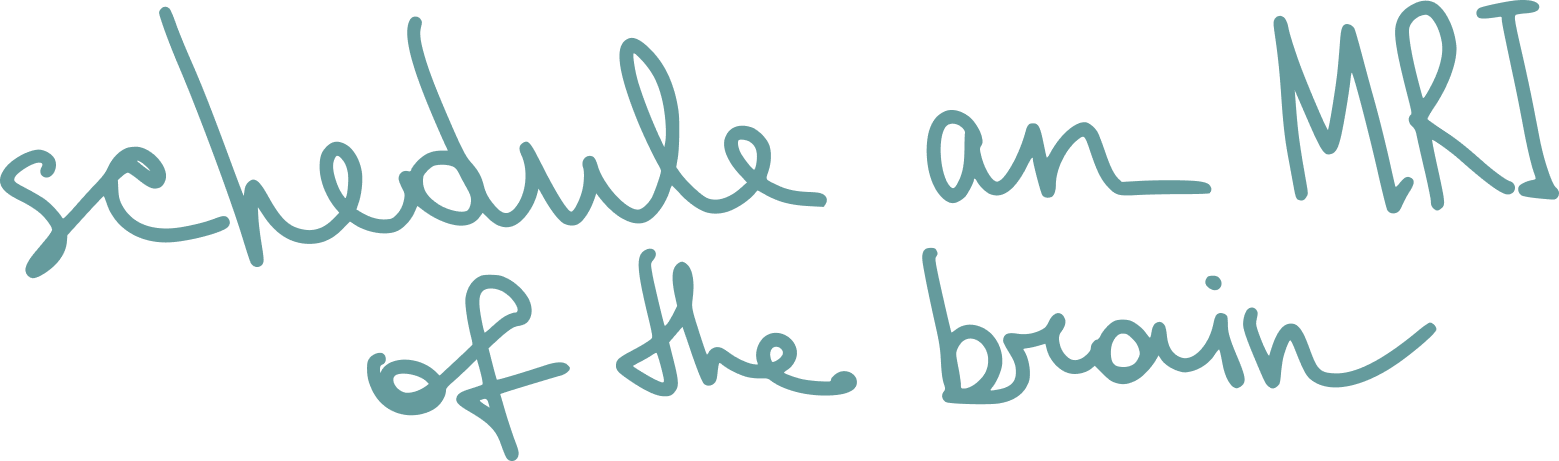 schedule an MRI
of the brain